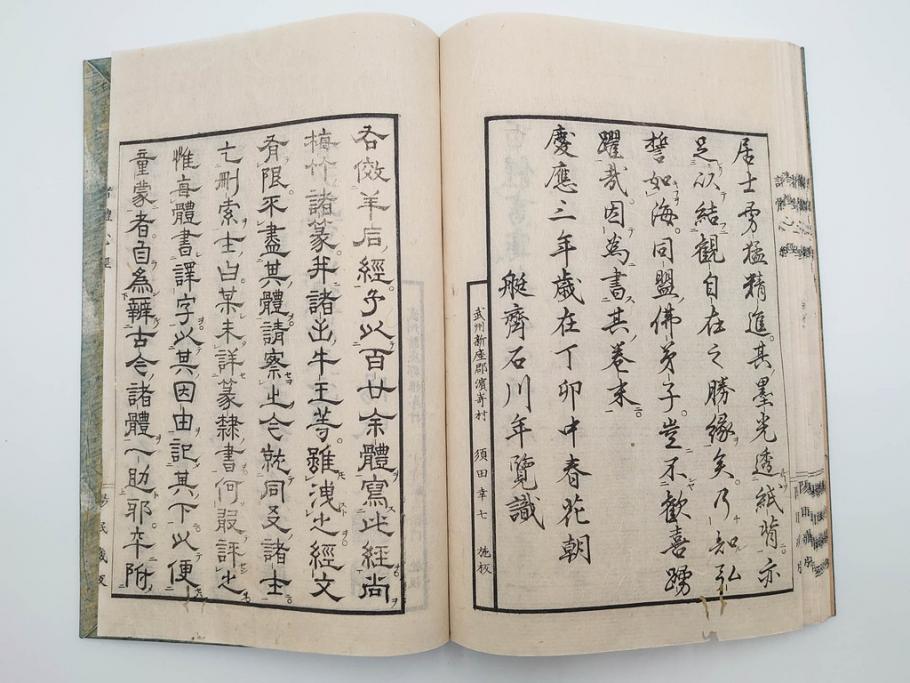 居士勇猛精進。其墨光透紙背。亦
足以結觀自在之勝緣矣。乃知弘
誓如海。同盟佛弟子。豈不歡喜踴
躍哉。因為書其卷末
慶應三年歲在丁卯中春花朝
艇齊石川年覽識
武州新座郡濱嵜村 須田幸七 施板
各傚羊后經子以百廿余體寫此經尚
梅竹諸篆井諸出牛王等。雖洩之經文
有限。不盡其體請察之今就同叉諸士
七刪索士白某未詳篆隸書何最評之
惟每體書譯字以其因由記其下以便
童蒙者。自為辨古今諸體一助耶。卒附